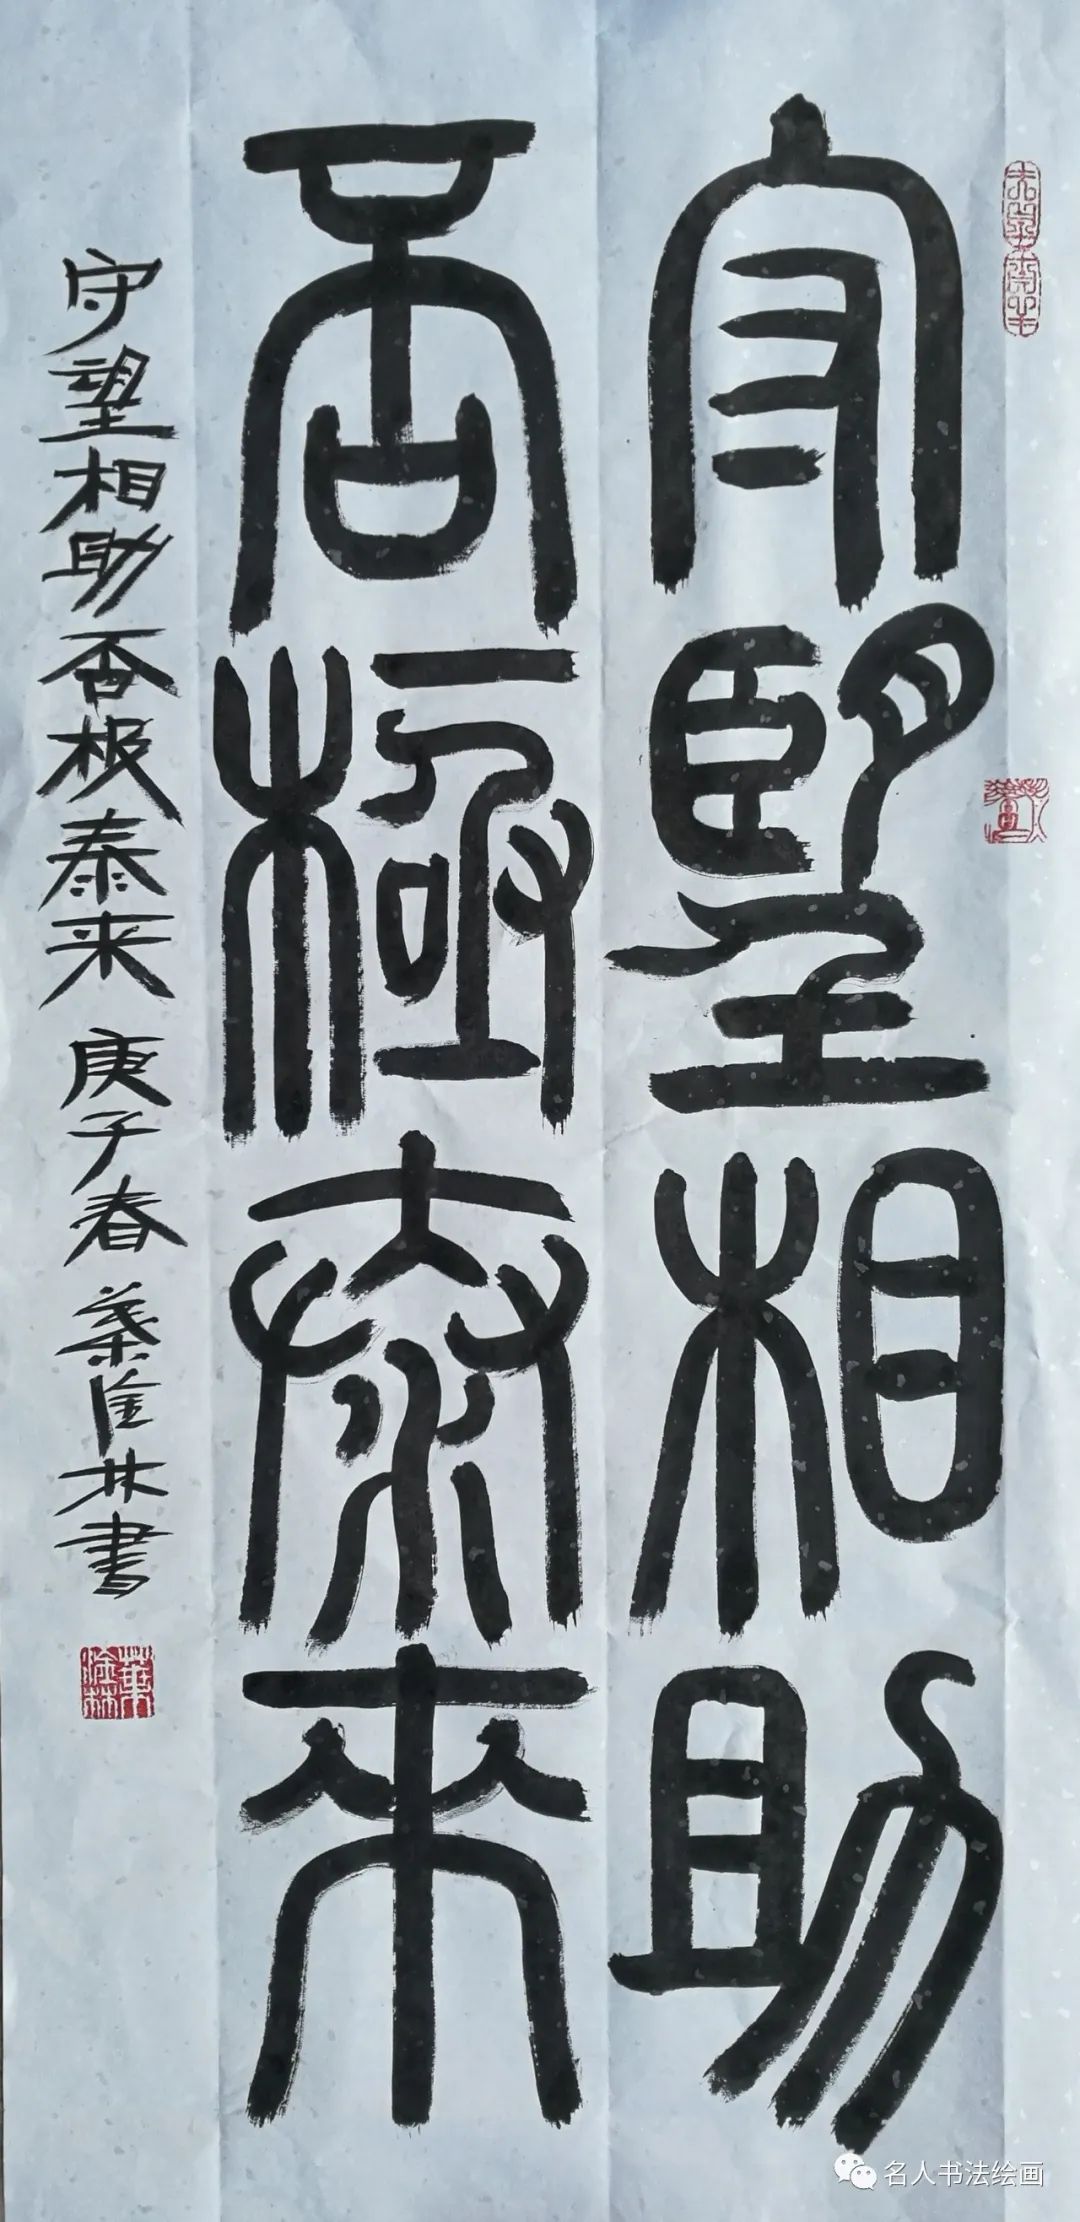 守望相助
否極泰來
守望相助否极泰来 庚子春 葉淦林書
名人书法绘画